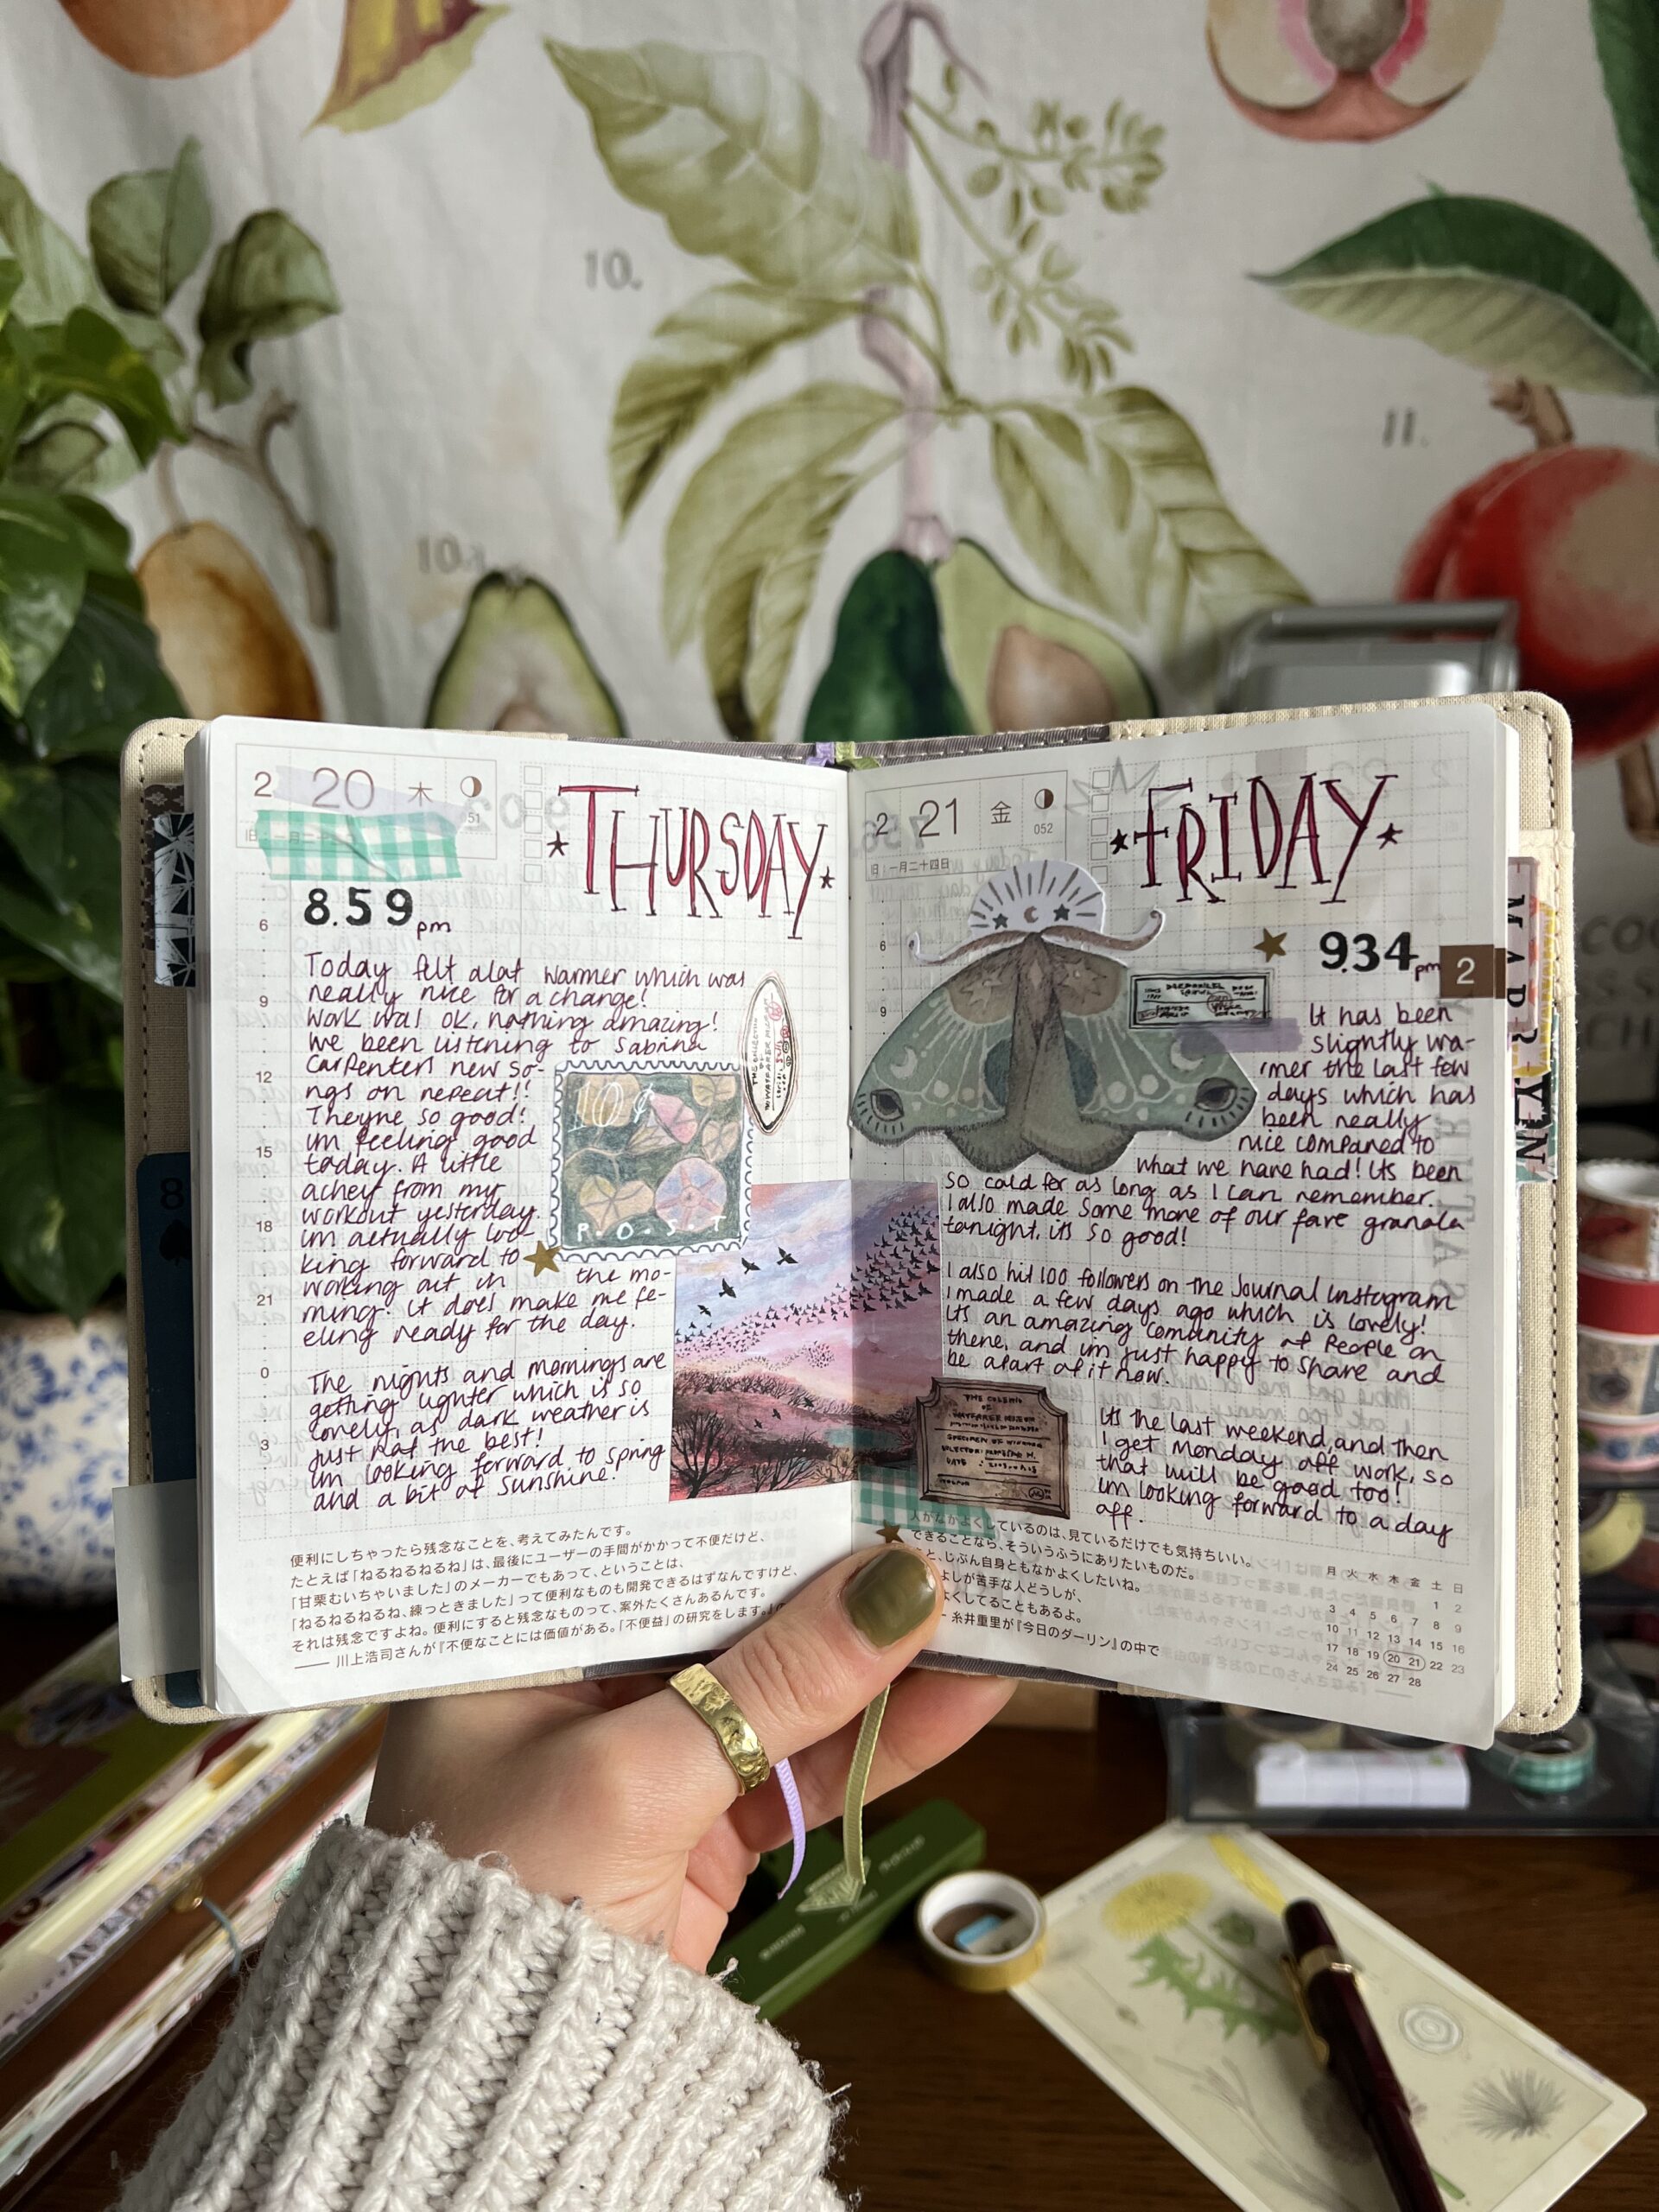 10.
11.
10a.
2 20 木
51
THURSDAY
8.59pm
6
9
12
15
18
21
0
3
Today felt alot warmer which was
really nice for a change!
Work was ok, nothing amazing!
We been listening to Sabrina
Carpenters new so-
ngs on repeat!!
Theyre so good!
im feeling good
today. A little
achey from my
workout yesterday.
im actually loo-
king forward to
working out in the mo-
rning! it does make me fe-
eling ready for the day.
The nights and mornings are
getting lighter which is so
lovely, as dark weather is
just not the best!
im looking forward to spring
and a bit of sunshine!
10¢
R.O.S.T
便利にしちゃったら残念なことを、考えてみたんです。
たとえば「ねるねるねるね」は、最後にユーザーの手間がかかって不便だけど、
「甘栗むいちゃいました」のメーカーでもあって、ということは、
「ねるねるねるね、練っときました」って便利なものも開発できるはずなんですけど、
それは残念ですよね。便利にすると残念なものって、案外たくさんあるんです。
── 川上浩司さんが『不便なことには価値がある。「不便益」の研究をします。』の
2 21 金
052
旧一月二十四日
FRIDAY
9.34pm
2
6
9
It has been
slightly wa-
rmer the last few
days which has
been really
nice compared to
what we have had! Its been
so cold for as long as I can remember.
I also made some more of our fave granola
tonight, its so good!
I also hit 100 followers on the Journal instagram
I made a few days ago which is lovely!
its an amazing comunity of people on
there, and im just happy to share and
be apart of it now.
Its the last weekend, and then
I get Monday off work, so
that will be good too!
im looking forward to a day
off.
人がなかよくしているのは、見ているだけでも気持ちいい。
できることなら、そういうふうにありたいものだ。
こと、じぶん自身ともなかよくしたいね。
よしが苦手な人どうしが、
よくしてることもあるよ。
糸井重里が『今日のダーリン』の中で
月 火 水 木 金 土 日
1 2
3 4 5 6 7 8 9
10 11 12 13 14 15 16
17 18 19 20 21 22 23
24 25 26 27 28
8